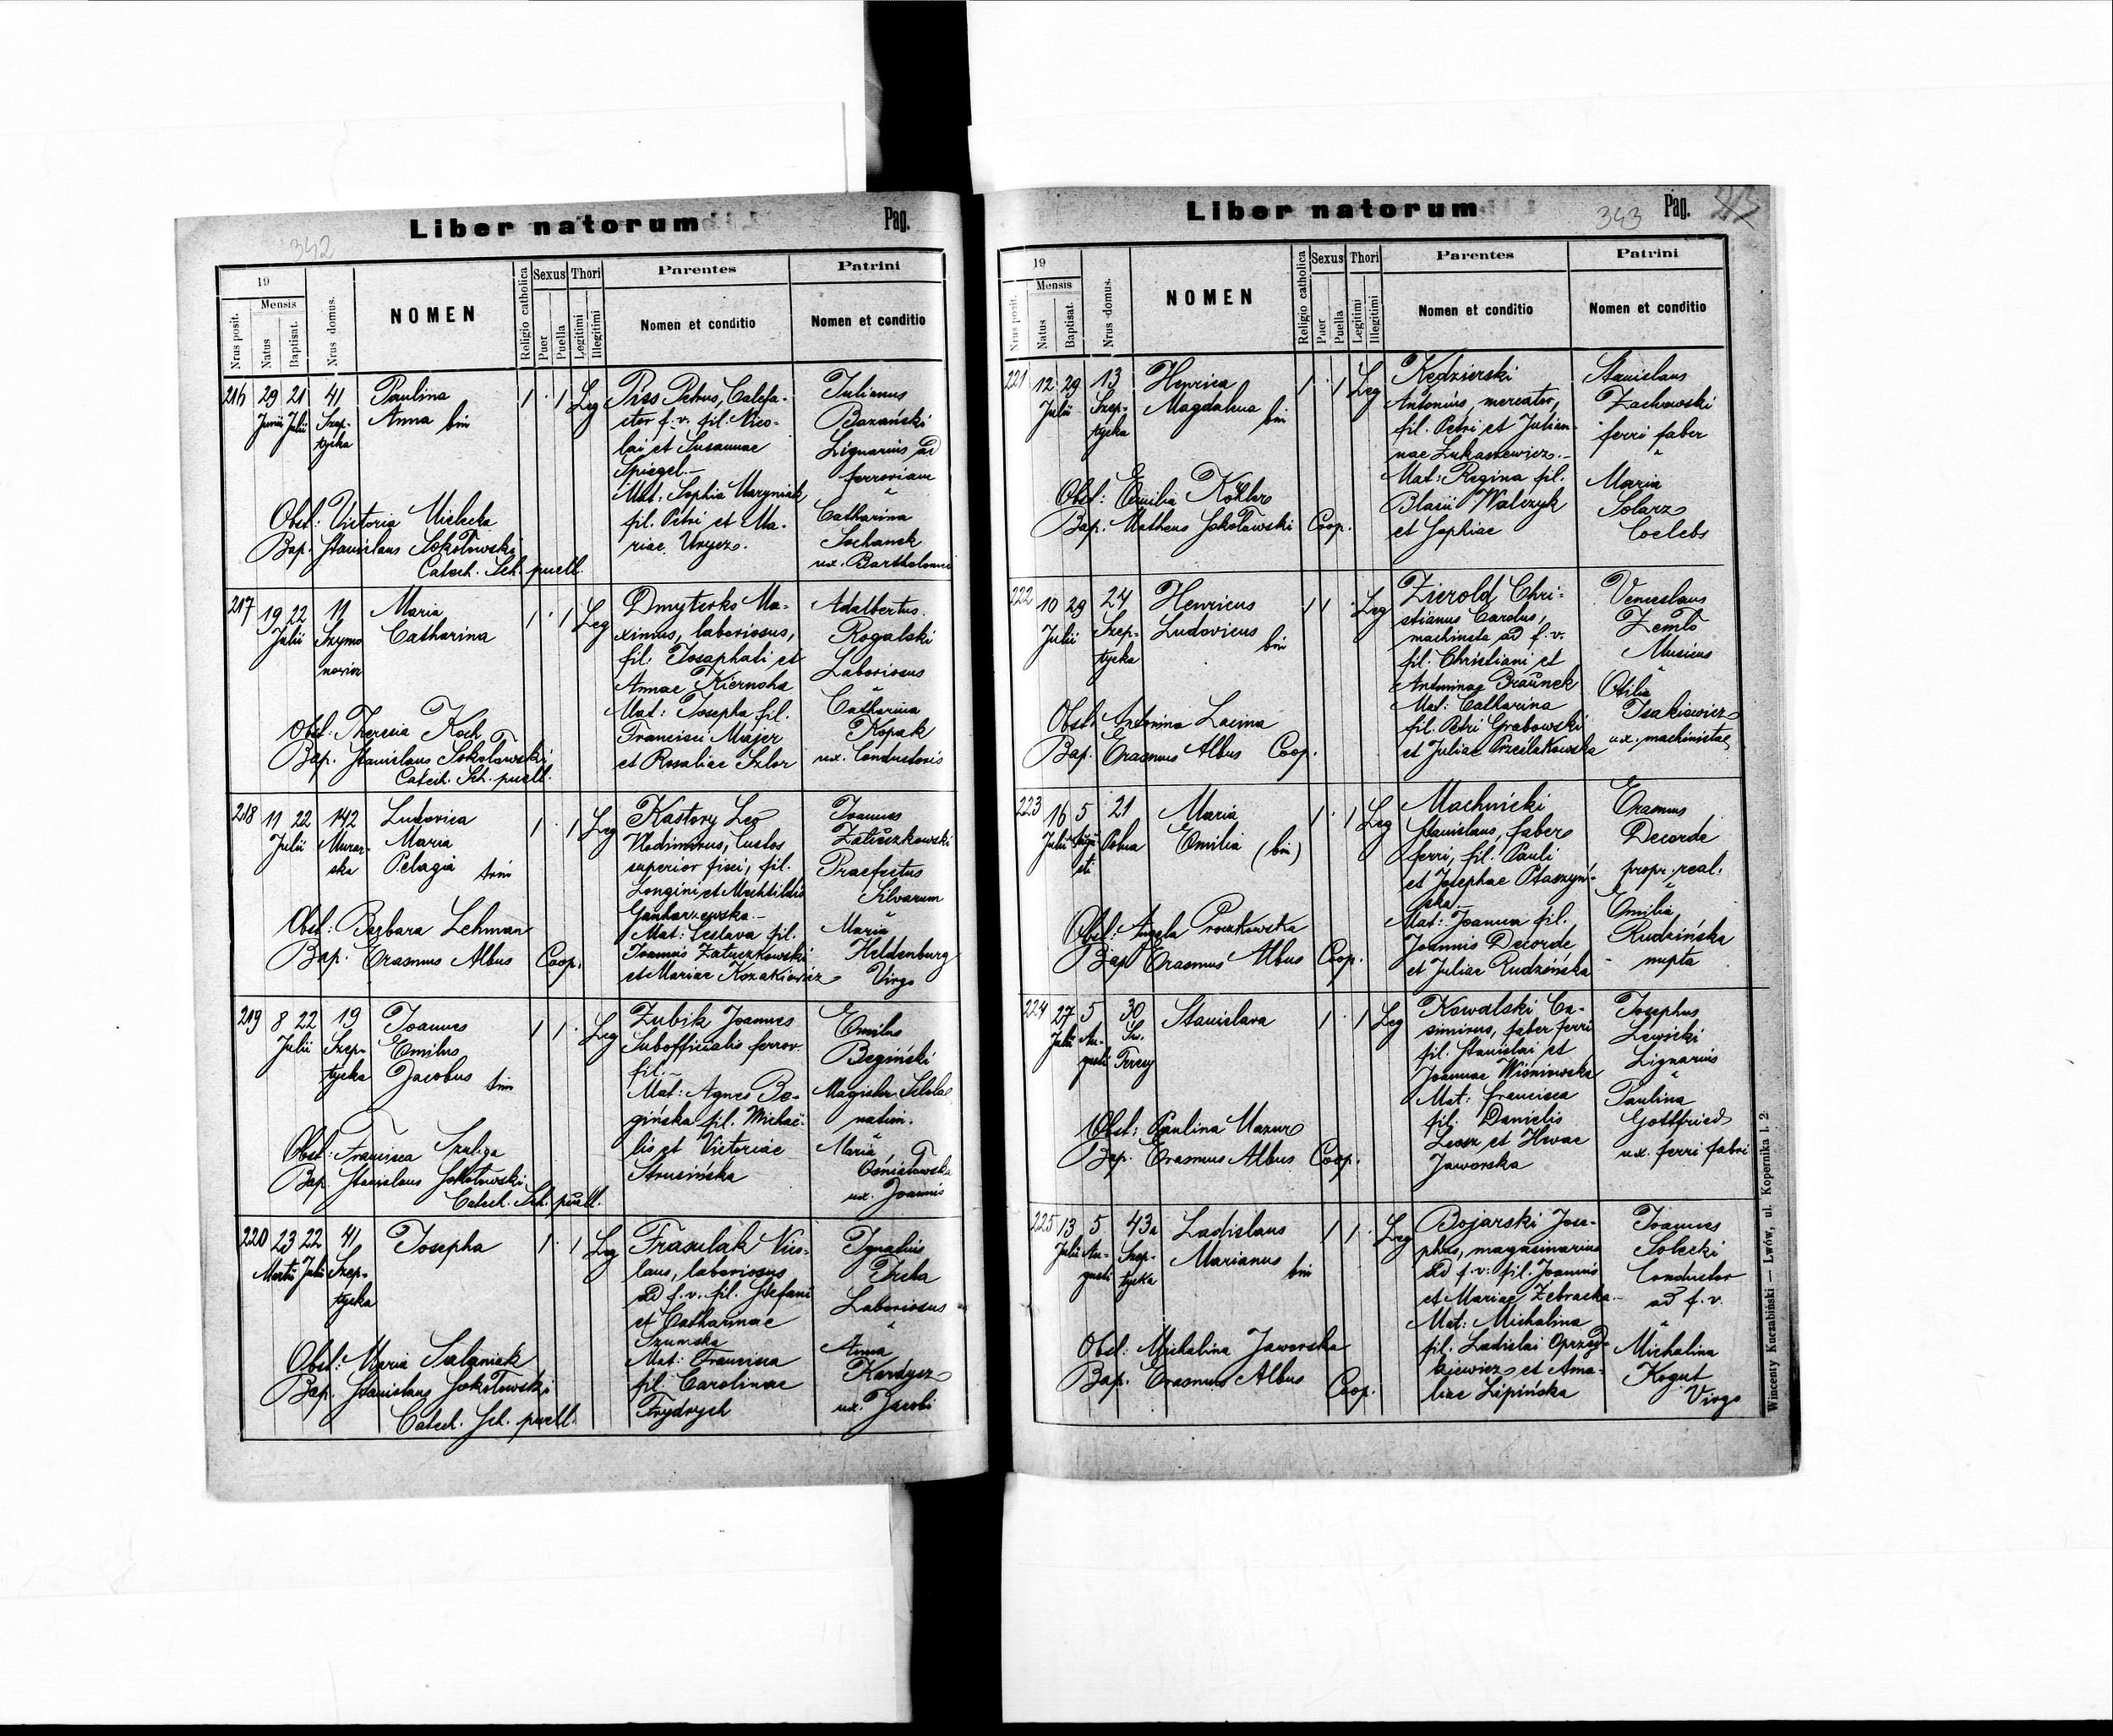 Liber natorum
Pag.
342
19
Mensis
Nrus posit.
Natus
Baptisat.
Nrus domus.
NOMEN
Religio catholica
Sexus
Puer
Puella
Thori
Legitimi
Illegitimi
Parentes
Nomen et conditio
Patrini
Nomen et conditio
216 29 21 41 Paulina 1 · 1 Leg
Junii Julii Szep-
tycka
Anna bin
Piss Petrus, Calefa-
ctor f. v. fil. Nico-
lai et Susannae
Spiegel.-
Mat: Sophia Maryniak
fil. Petri et Ma-
riae
Julianus
Bazański
Lignarius ad
ferroviam
Catharina
Sochanek
ux. Bartholomaei
Obst: Victoria Mielecka
Bap. Stanislaus Sokołowski
Catech. Sch. puell.
217 19 22 11 Maria 1 · 1 Leg
Julii Szymo
nowicz
Catharina
Dmyterko Ma-
ximus, laboriosus,
fil. Josaphati et
Annae Kiernoha
Mat: Josepha fil.
Francisci Majer
et Rosaliae Szlor
Adalbertus
Rogalski
Laboriosus
Catharina
Kopak
ux. Conductoris
Obst: Theresia Koch
Bap. Stanislaus Sokołowski
Catech. Sch. puell.
218 11 22 142 Ludovica 1 · 1 Leg
Julii Murar-
ska
Maria
Pelagia trin
Kastory Leo
Vladimirus, Custos
superior fisci, fil.
Longini et Mechtildis
Mat: Ceslava fil.
Joannis Załuczkowski
et Mariae Kozakiewicz
Joannes
Załuczkowski
Praefectus
Silvarum
Maria
Heldenburg
Virgo
Obst: Barbara Lehman
Bap. Erasmus Albus Coop.
219 8 22 19 Joannes 1 1 · Leg
Julii Szep-
tycka
Emilus
Jacobus trin
Zubik Joannes
Subofficialis ferrov.
fil.-
Mat: Agnes Be-
gińska fil. Michaë-
lis et Victoriae
Strusińska
Emilus
Begiński
Magister Scholae
nation.
Maria
Ośniałowska
ux. Joannis
Obst: Francisca Szeliga
Bap. Stanislaus Sokołowski
Catech. Sch. puell.
220 23 22 41 Josepha 1 · 1 Leg
Martii Julii Szep-
tycka
Frasulak Nico-
laus, laboriosus
ad f. v. fil. Stefani
et Catharinae
Szumska
Mat: Francisca
fil. Carolinae
Frydrych
Ignatius
Treba
Laboriosus
Anna
Kardysz
ux. Jacobi
Obst: Maria Salaniak
Bap. Stanislaus Sokołowski
Catech. Sch. puell.
Liber natorum
343
Pag.
19
Mensis
Nrus posit.
Natus
Baptisat.
Nrus domus.
NOMEN
Religio catholica
Sexus
Puer
Puella
Thori
Legitimi
Illegitimi
Parentes
Nomen et conditio
Patrini
Nomen et conditio
221 12 29 13 Henrica 1 · 1 Leg
Julii Szep-
tycka
Magdalena bin
Kędzierski
Antonius, mercator,
fil. Petri et Julian-
nae Łukasiewicz.-
Mat: Regina fil.
Blasii Walczyk
et Sophiae
Stanislaus
Zachowski
ferri faber
Maria
Solarz
Coelebs
Obst: Emilia Köhler
Bap. Matheus Sokołowski Coop.
222 10 29 24 Henricus 1 1 · Leg
Julii Szep-
tycka
Ludovicus bin
Zierold Chri-
stianus Carolus,
machinista ad f. v.
fil. Christiani et
Antoninae Braunek
Mat: Catharina
fil. Petri Grabowski
et Juliae Przeslakowska
Venceslaus
Zemło
Musicus
Otilia
Isakiewicz
ux. machinistae
Obst: Antonina Lacina
Bap. Erasmus Albus Coop.
223 16 5 21 Maria 1 · 1 Leg
Julii Augu
sti
Polna
Emilia (bin)
Machnicki
Stanislaus, faber
ferri, fil. Pauli
et Josephae Ptaszyń-
ska.-
Mat: Joanna fil.
Joannis Decorde
et Juliae Rudzińska
Erasmus
Decorde
propr. real.
Emilia
Rudzińska
nupta
Obst: Angela Proczkowska
Bap. Erasmus Albus Coop.
224 27 5 30 Stanislava 1 · 1 Leg
Julii Au-
gusti
Św.
Teresy
Kowalski Ca-
simirus, faber ferri
fil. Stanislai et
Joannae Wiśniowska
Mat: Francisca
fil. Danielis
et Hevae
Jaworska
Josephus
Lewicki
Lignarius
Paulina
Gottfried
ux. ferri fabri
Obst: Paulina Mazur
Bap. Erasmus Albus Coop.
225 13 5 43a Ladislaus 1 1 · Leg
Julii Au-
gusti
Szep-
tycka
Marianus bin
Bojarski Jose-
phus, magasinarius
ad f. v. fil. Joannis
et Mariae Żebracka.-
Mat: Michalina
fil. Ladislai Oprzęd-
kiewicz et Ama-
liae Lipińska
Joannes
Solecki
Conductor
ad f. v.
Michalina
Kogut
Virgo
Obst: Michalina Jaworska
Bap. Erasmus Albus
Coop.
Wincenty Kuczabiński — Lwów, ul. Kopernika l. 2